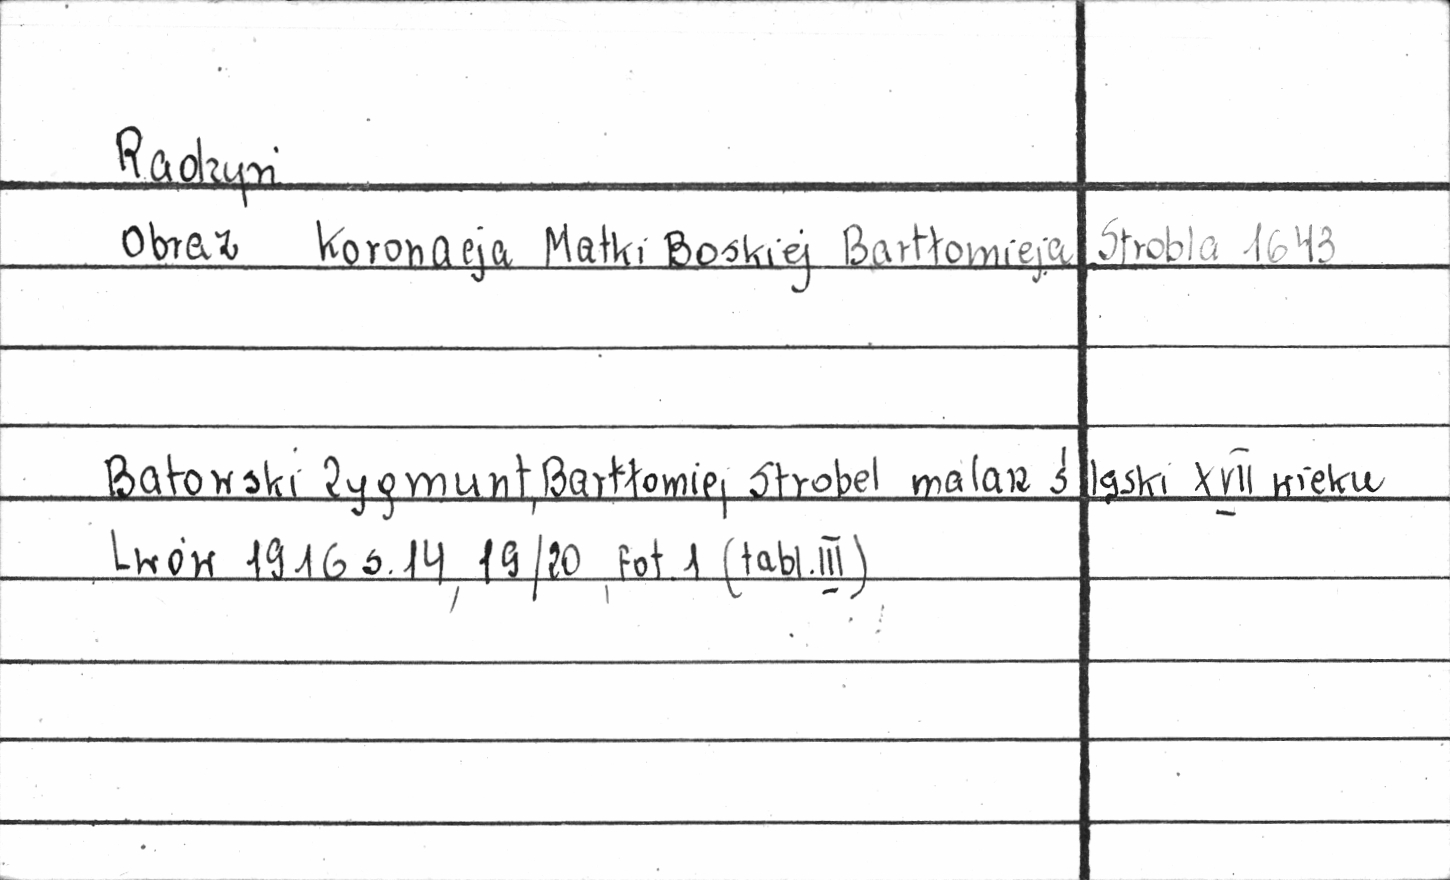 Radzyń
Obraz Koronacja Matki Boskiej Bartłomieja Strobla 1643
Batowski Zygmunt, Bartłomiej Strobel malarz śląski XVII wieku
Lwów 1916 s. 14, 19/20, fot. 1 (tabl. III)